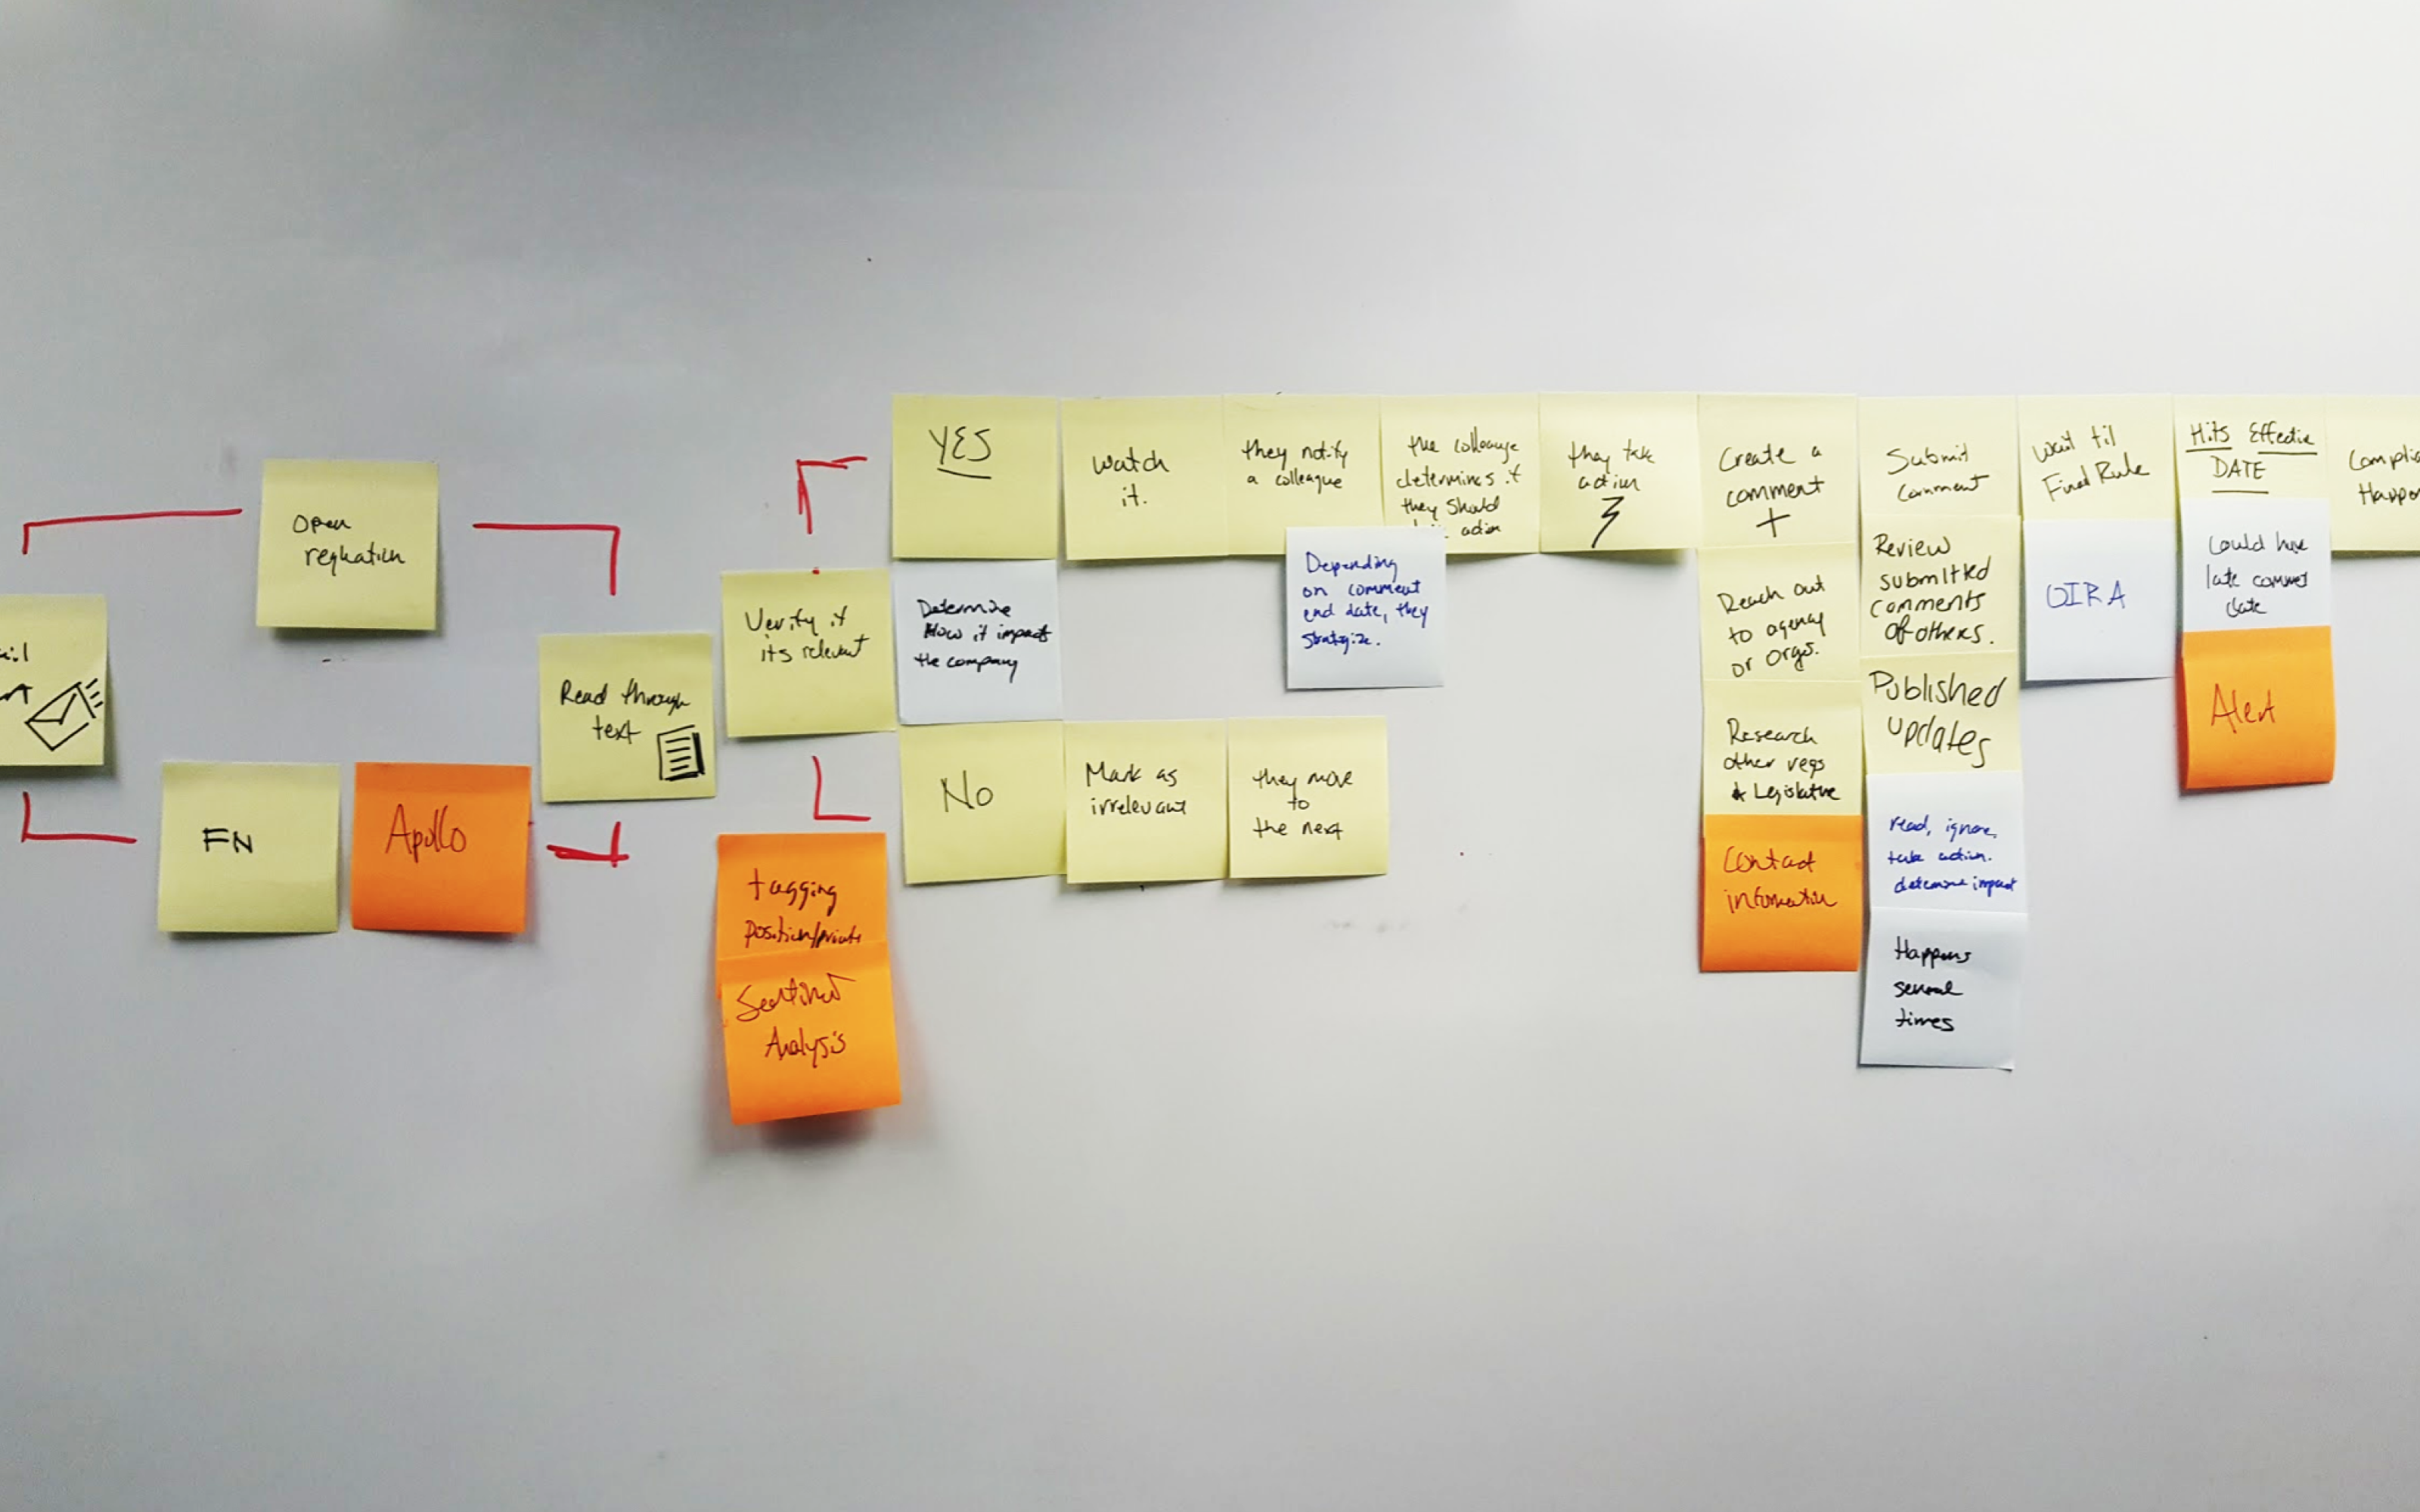 Open
regulation
FN
Apollo
Read through
text
Verify if
its relevant
tagging
position/private
Analysis
YES
Determine
How it impacts
the company
No
watch
it.
Mark as
irrelevant
they notify
a colleague
they move
to
the next
the colleauge
determines if
they should
action
Depending
on comment
end date, they
strategize.
they take
action
Create a
comment
+
Reach out
to agency
or orgs.
Research
other regs
& Legislative
Contact
information
Submit
Comment
Review
submitted
comments
of others.
Published
updates
read, ignore,
take action.
determine impact
Happens
several
times
Wait til
Final Rule
OIRA
Hits Effective
DATE
Could have
late comment
date
Alert